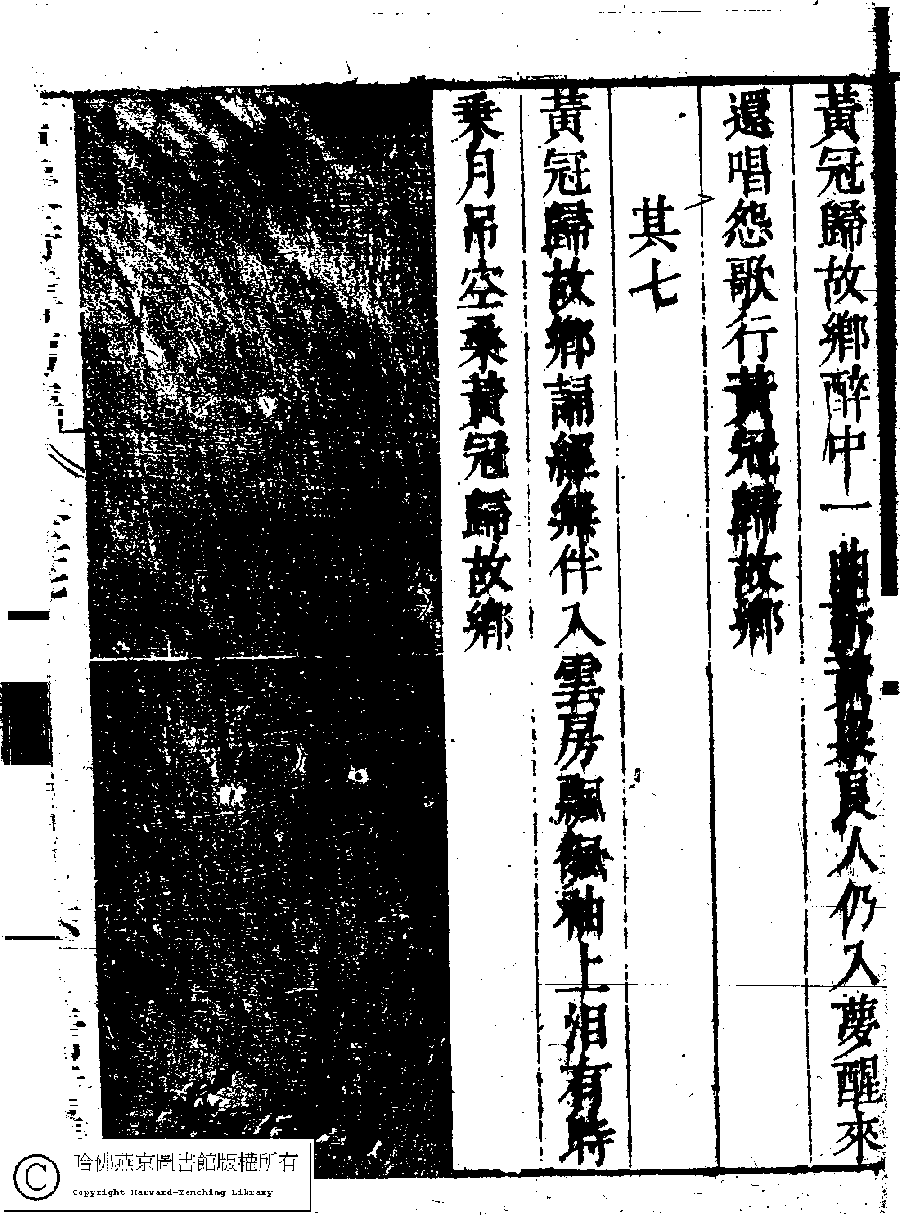 黃冠歸故鄉醉中一曲人仍入夢醒來
還唱怨歌行黃冠歸故鄉
其七
黃冠歸故鄉誦經無伴入雲房飄飄袖上泪有時
乘月吊空桑黃冠歸故鄉
哈佛燕京圖書館版權所有
Copyright Harvard-Yenching Library